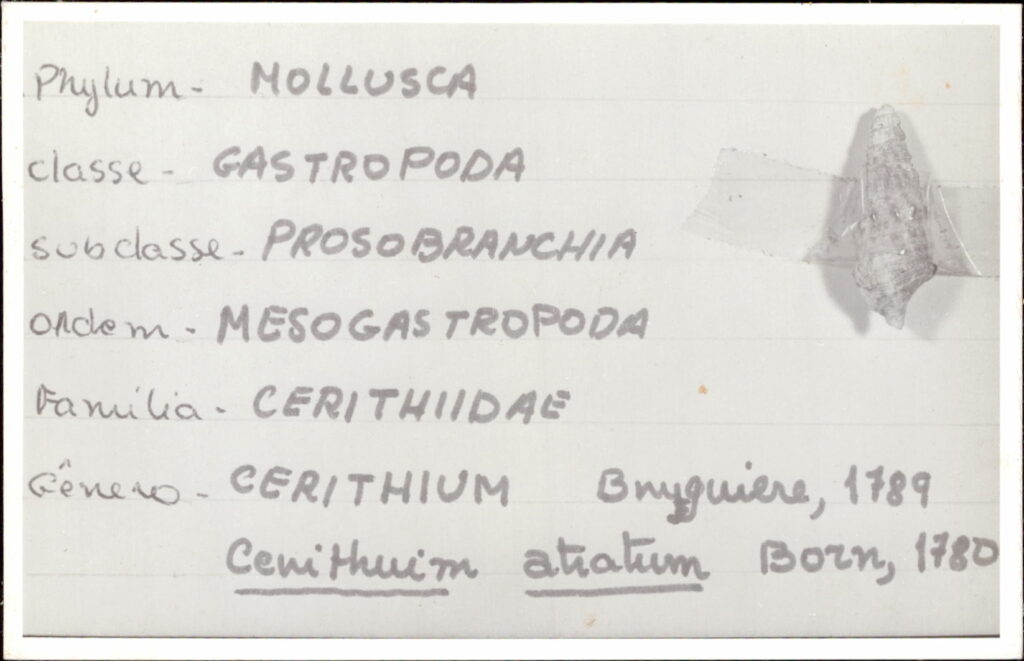 Phylum - MOLLUSCA
classe - GASTROPODA
subclasse - PROSOBRANCHIA
ordem - MESOGASTROPODA
Família - CERITHIIDAE
Gênero - CERITHIUM Bruguiere, 1789
Cerithuim atratum Born, 1780